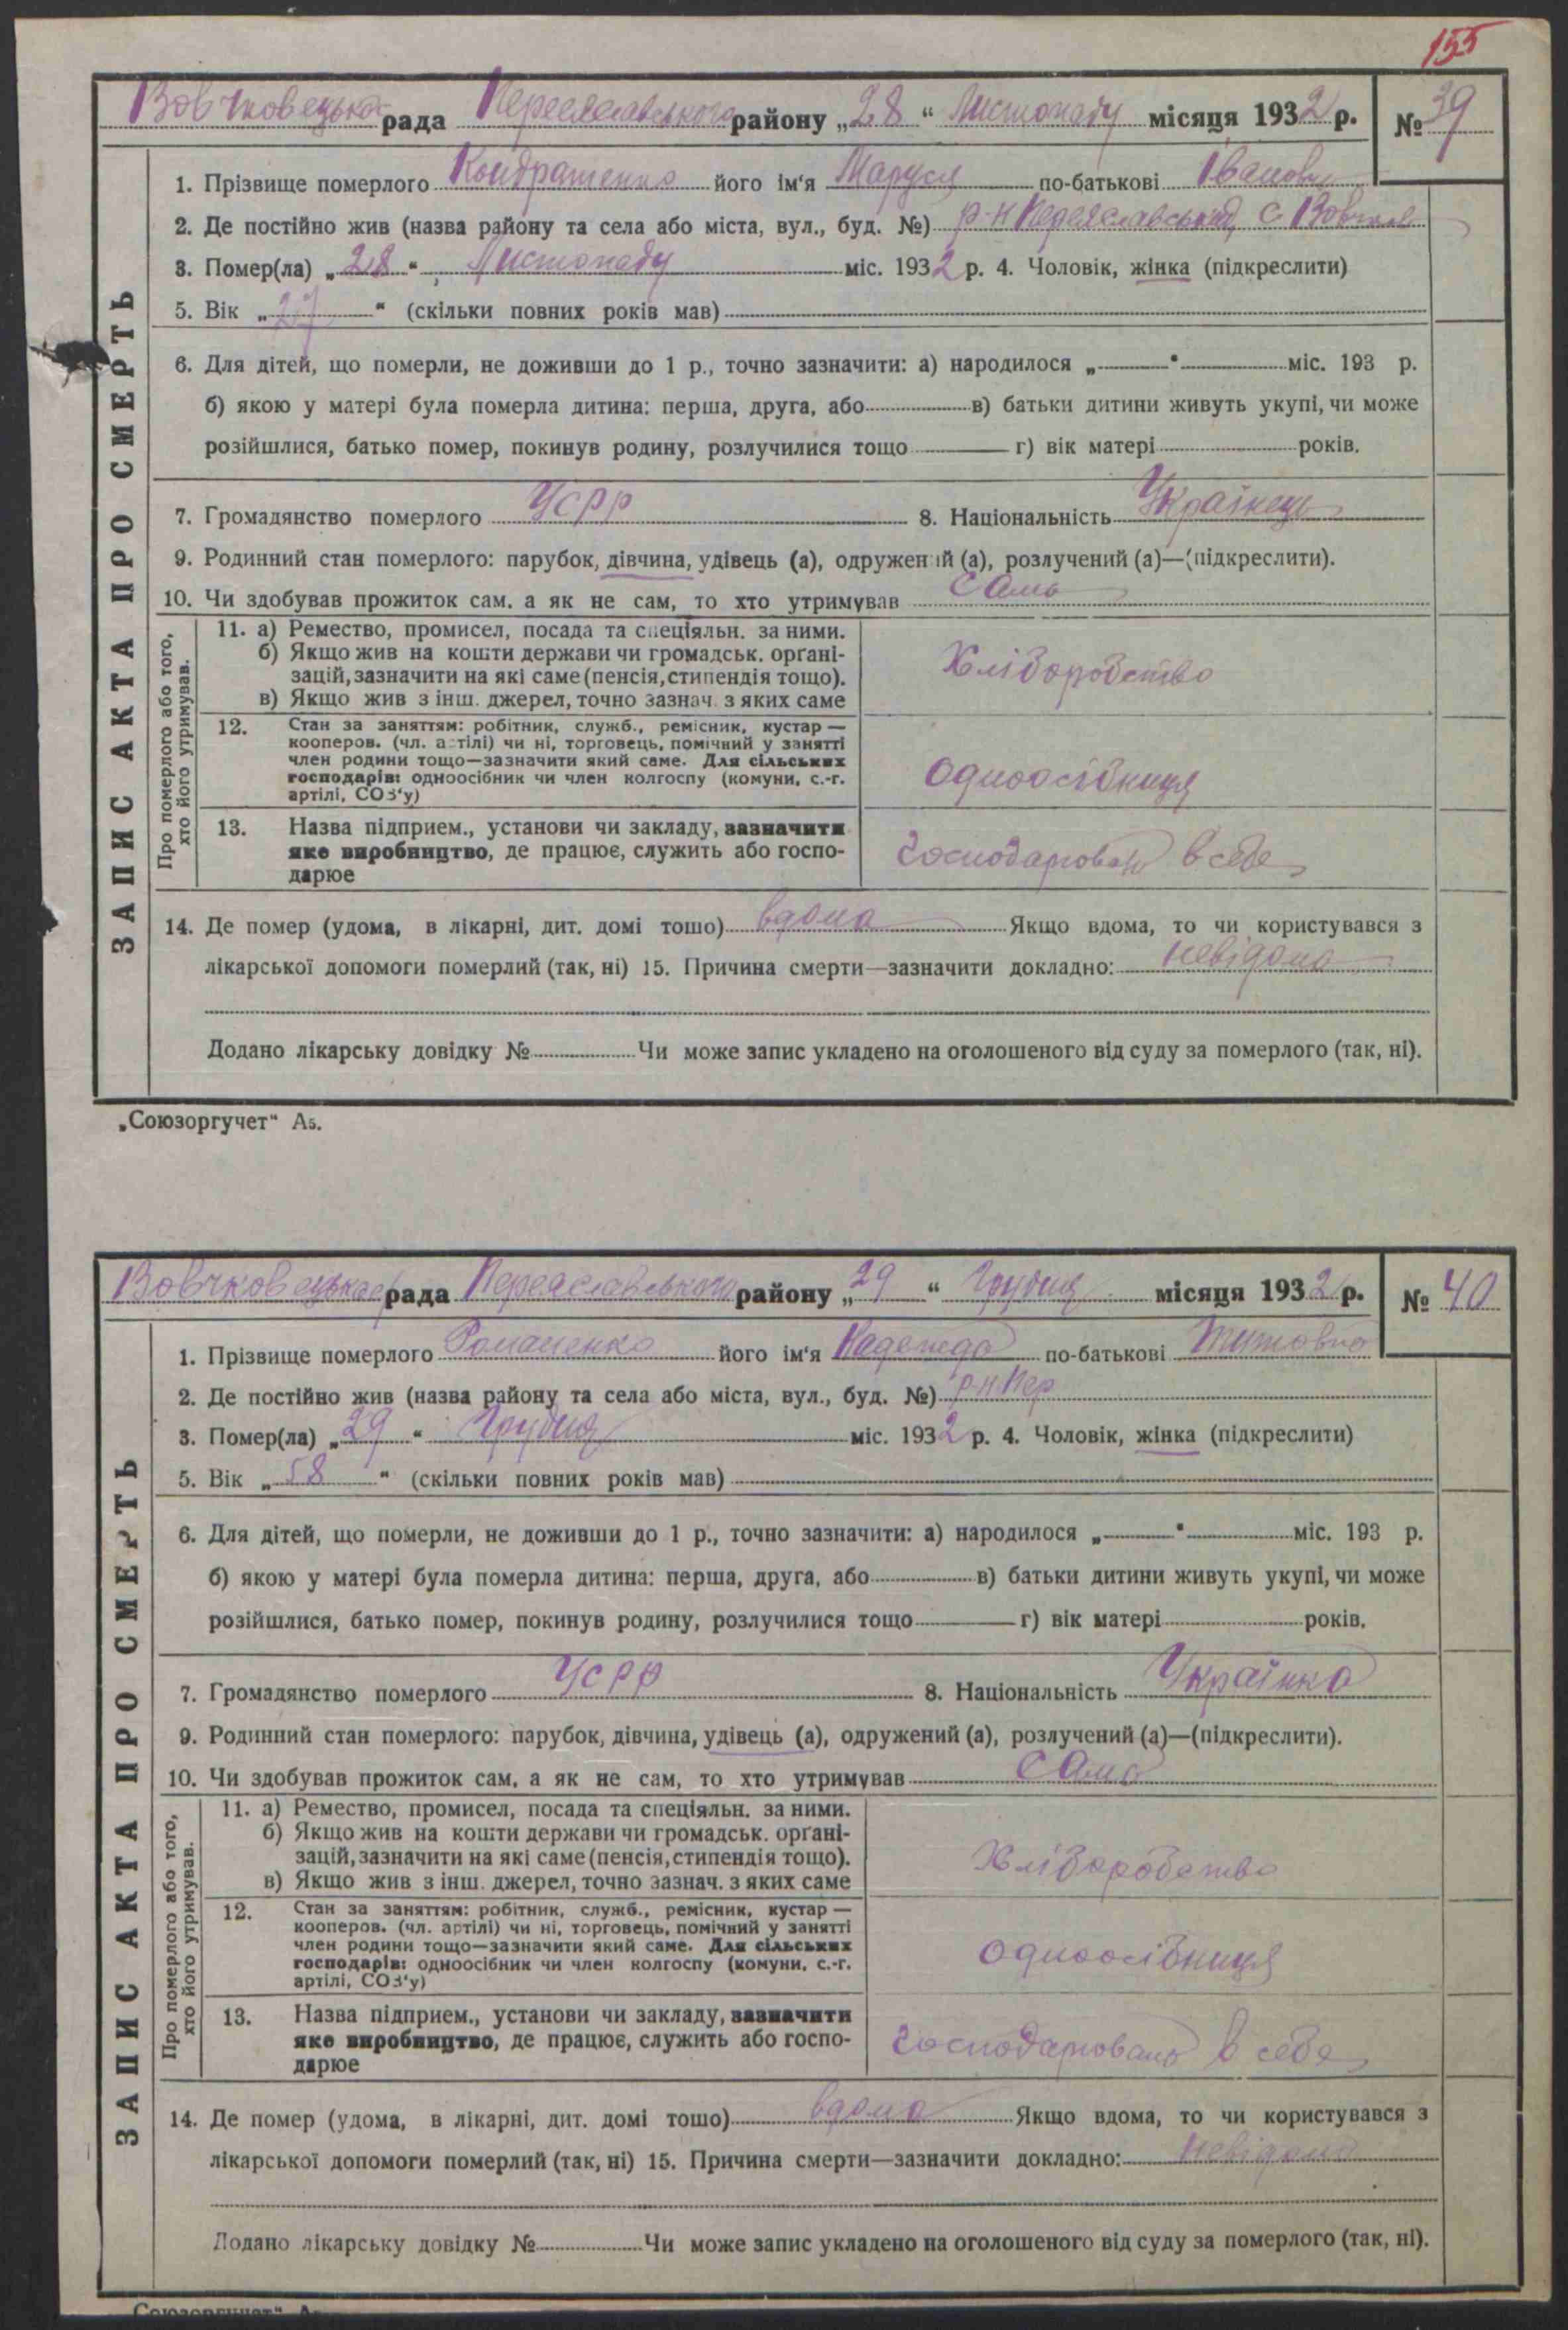 155
Вовчковецька рада Переяславського району „28“ Листопаду місяця 1932 р. № 39
1. Прізвище померлого Кондратенко його ім'я Маруся по-батькові Іванова
2. Де постійно жив (назва району та села або міста, вул., буд. №) р-н Переяславський с.
3. Помер(ла) „28“ Листопаду міс. 1932 р. 4. Чоловік, жінка (підкреслити)
5. Вік „27“ (скільки повних років мав)
6. Для дітей, що померли, не доживши до 1 р., точно зазначити: а) народилося „ “ міс. 193 р.
б) якою у матері була померла дитина: перша, друга, або в) батьки дитини живуть укупі, чи може
розійшлися, батько помер, покинув родину, розлучилися тощо г) вік матері років.
7. Громадянство померлого УСРР 8. Національність Українець
9. Родинний стан померлого: парубок, дівчина, удівець (а), одружений (а), розлучений (а)—(підкреслити).
10. Чи здобував прожиток сам, а як не сам, то хто утримував сама
11. а) Ремество, промисел, посада та спеціяльн. за ними.
б) Якщо жив на кошти держави чи громадськ. органі-
зацій, зазначити на які саме (пенсія, стипендія тощо).
в) Якщо жив з інш. джерел, точно зазнач. з яких саме
Хліборобство
12. Стан за заняттям: робітник, служб., ремісник, кустар —
кооперов. (чл. артілі) чи ні, торговець, помічний у занятті
член родини тощо—зазначити який саме. Для сільських
господарів: одноосібник чи член колгоспу (комуни, с.-г.
артілі, СОЗ'у)
Одноосібниця
13. Назва підприєм., установи чи закладу, зазначити
яке виробництво, де працює, служить або госпо-
дарює
в себе
Про померлого або того,
хто його утримував.
14. Де помер (удома, в лікарні, дит. домі тощо) вдома Якщо вдома, то чи користувався з
лікарської допомоги померлий (так, ні) 15. Причина смерти—зазначити докладно: невідома
Додано лікарську довідку № Чи може запис укладено на оголошеного від суду за померлого (так, ні).
ЗАПИС АКТА ПРО СМЕРТЬ
„Союзоргучет“ А5.
Вовчковецька рада Переяславського району „29“ Грудня місяця 1932 р. № 40
1. Прізвище померлого Романенко його ім'я Надежда по-батькові Титовна
2. Де постійно жив (назва району та села або міста, вул., буд. №) р-н Пер
3. Помер(ла) „29“ Грудня міс. 1932 р. 4. Чоловік, жінка (підкреслити)
5. Вік „58“ (скільки повних років мав)
6. Для дітей, що померли, не доживши до 1 р., точно зазначити: а) народилося „ “ міс. 193 р.
б) якою у матері була померла дитина: перша, друга, або в) батьки дитини живуть укупі, чи може
розійшлися, батько помер, покинув родину, розлучилися тощо г) вік матері років.
7. Громадянство померлого УСРР 8. Національність Українка
9. Родинний стан померлого: парубок, дівчина, удівець (а), одружений (а), розлучений (а)—(підкреслити).
10. Чи здобував прожиток сам, а як не сам, то хто утримував сама
11. а) Ремество, промисел, посада та спеціяльн. за ними.
б) Якщо жив на кошти держави чи громадськ. органі-
зацій, зазначити на які саме (пенсія, стипендія тощо).
в) Якщо жив з інш. джерел, точно зазнач. з яких саме
Хліборобство
12. Стан за заняттям: робітник, служб., ремісник, кустар —
кооперов. (чл. артілі) чи ні, торговець, помічний у занятті
член родини тощо—зазначити який саме. Для сільських
господарів: одноосібник чи член колгоспу (комуни, с.-г.
артілі, СОЗ'у)
Одноосібниця
13. Назва підприєм., установи чи закладу, зазначити
яке виробництво, де працює, служить або госпо-
дарює
в себе
Про померлого або того,
хто його утримував.
14. Де помер (удома, в лікарні, дит. домі тощо) вдома Якщо вдома, то чи користувався з
лікарської допомоги померлий (так, ні) 15. Причина смерти—зазначити докладно: невідома
Додано лікарську довідку № Чи може запис укладено на оголошеного від суду за померлого (так, ні).
ЗАПИС АКТА ПРО СМЕРТЬ